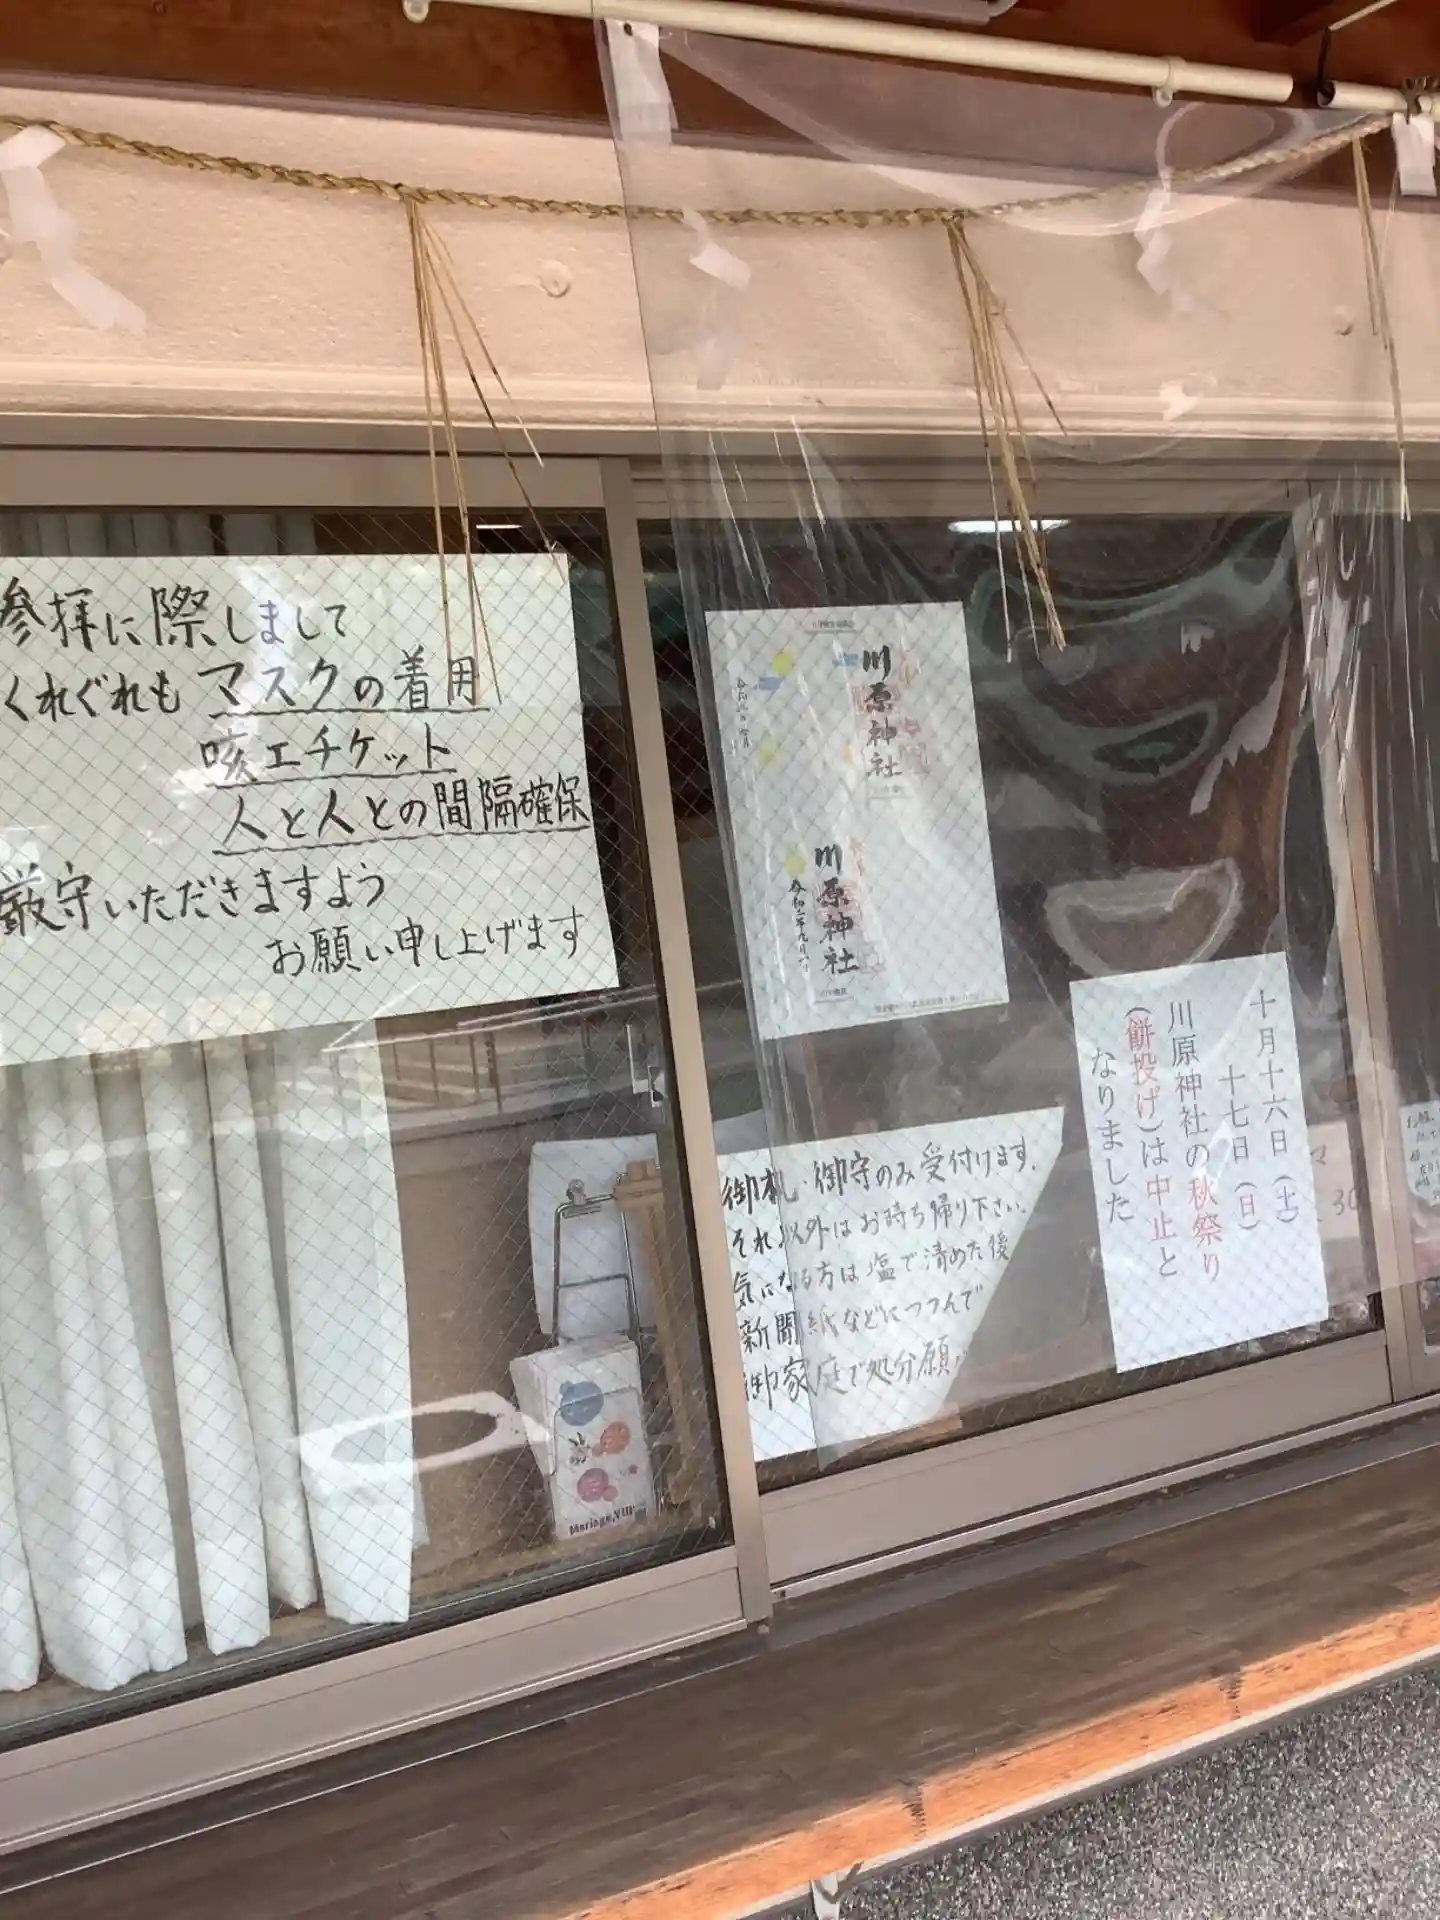 参拝に際しまして
くれぐれもマスクの着用
咳エチケット
人と人との間隔確保
厳守いただきますよう
お願い申し上げます
川原神社
川原神社
令和二年九月
御札・御守のみ受付けます。
それ以外はお持ち帰り下さい。
気になる方は塩で清めた後
新聞紙などにつつんで
御家庭で処分願
十月十六日(土)
十七日(日)
川原神社の秋祭り
(餅投げ)は中止と
なりました